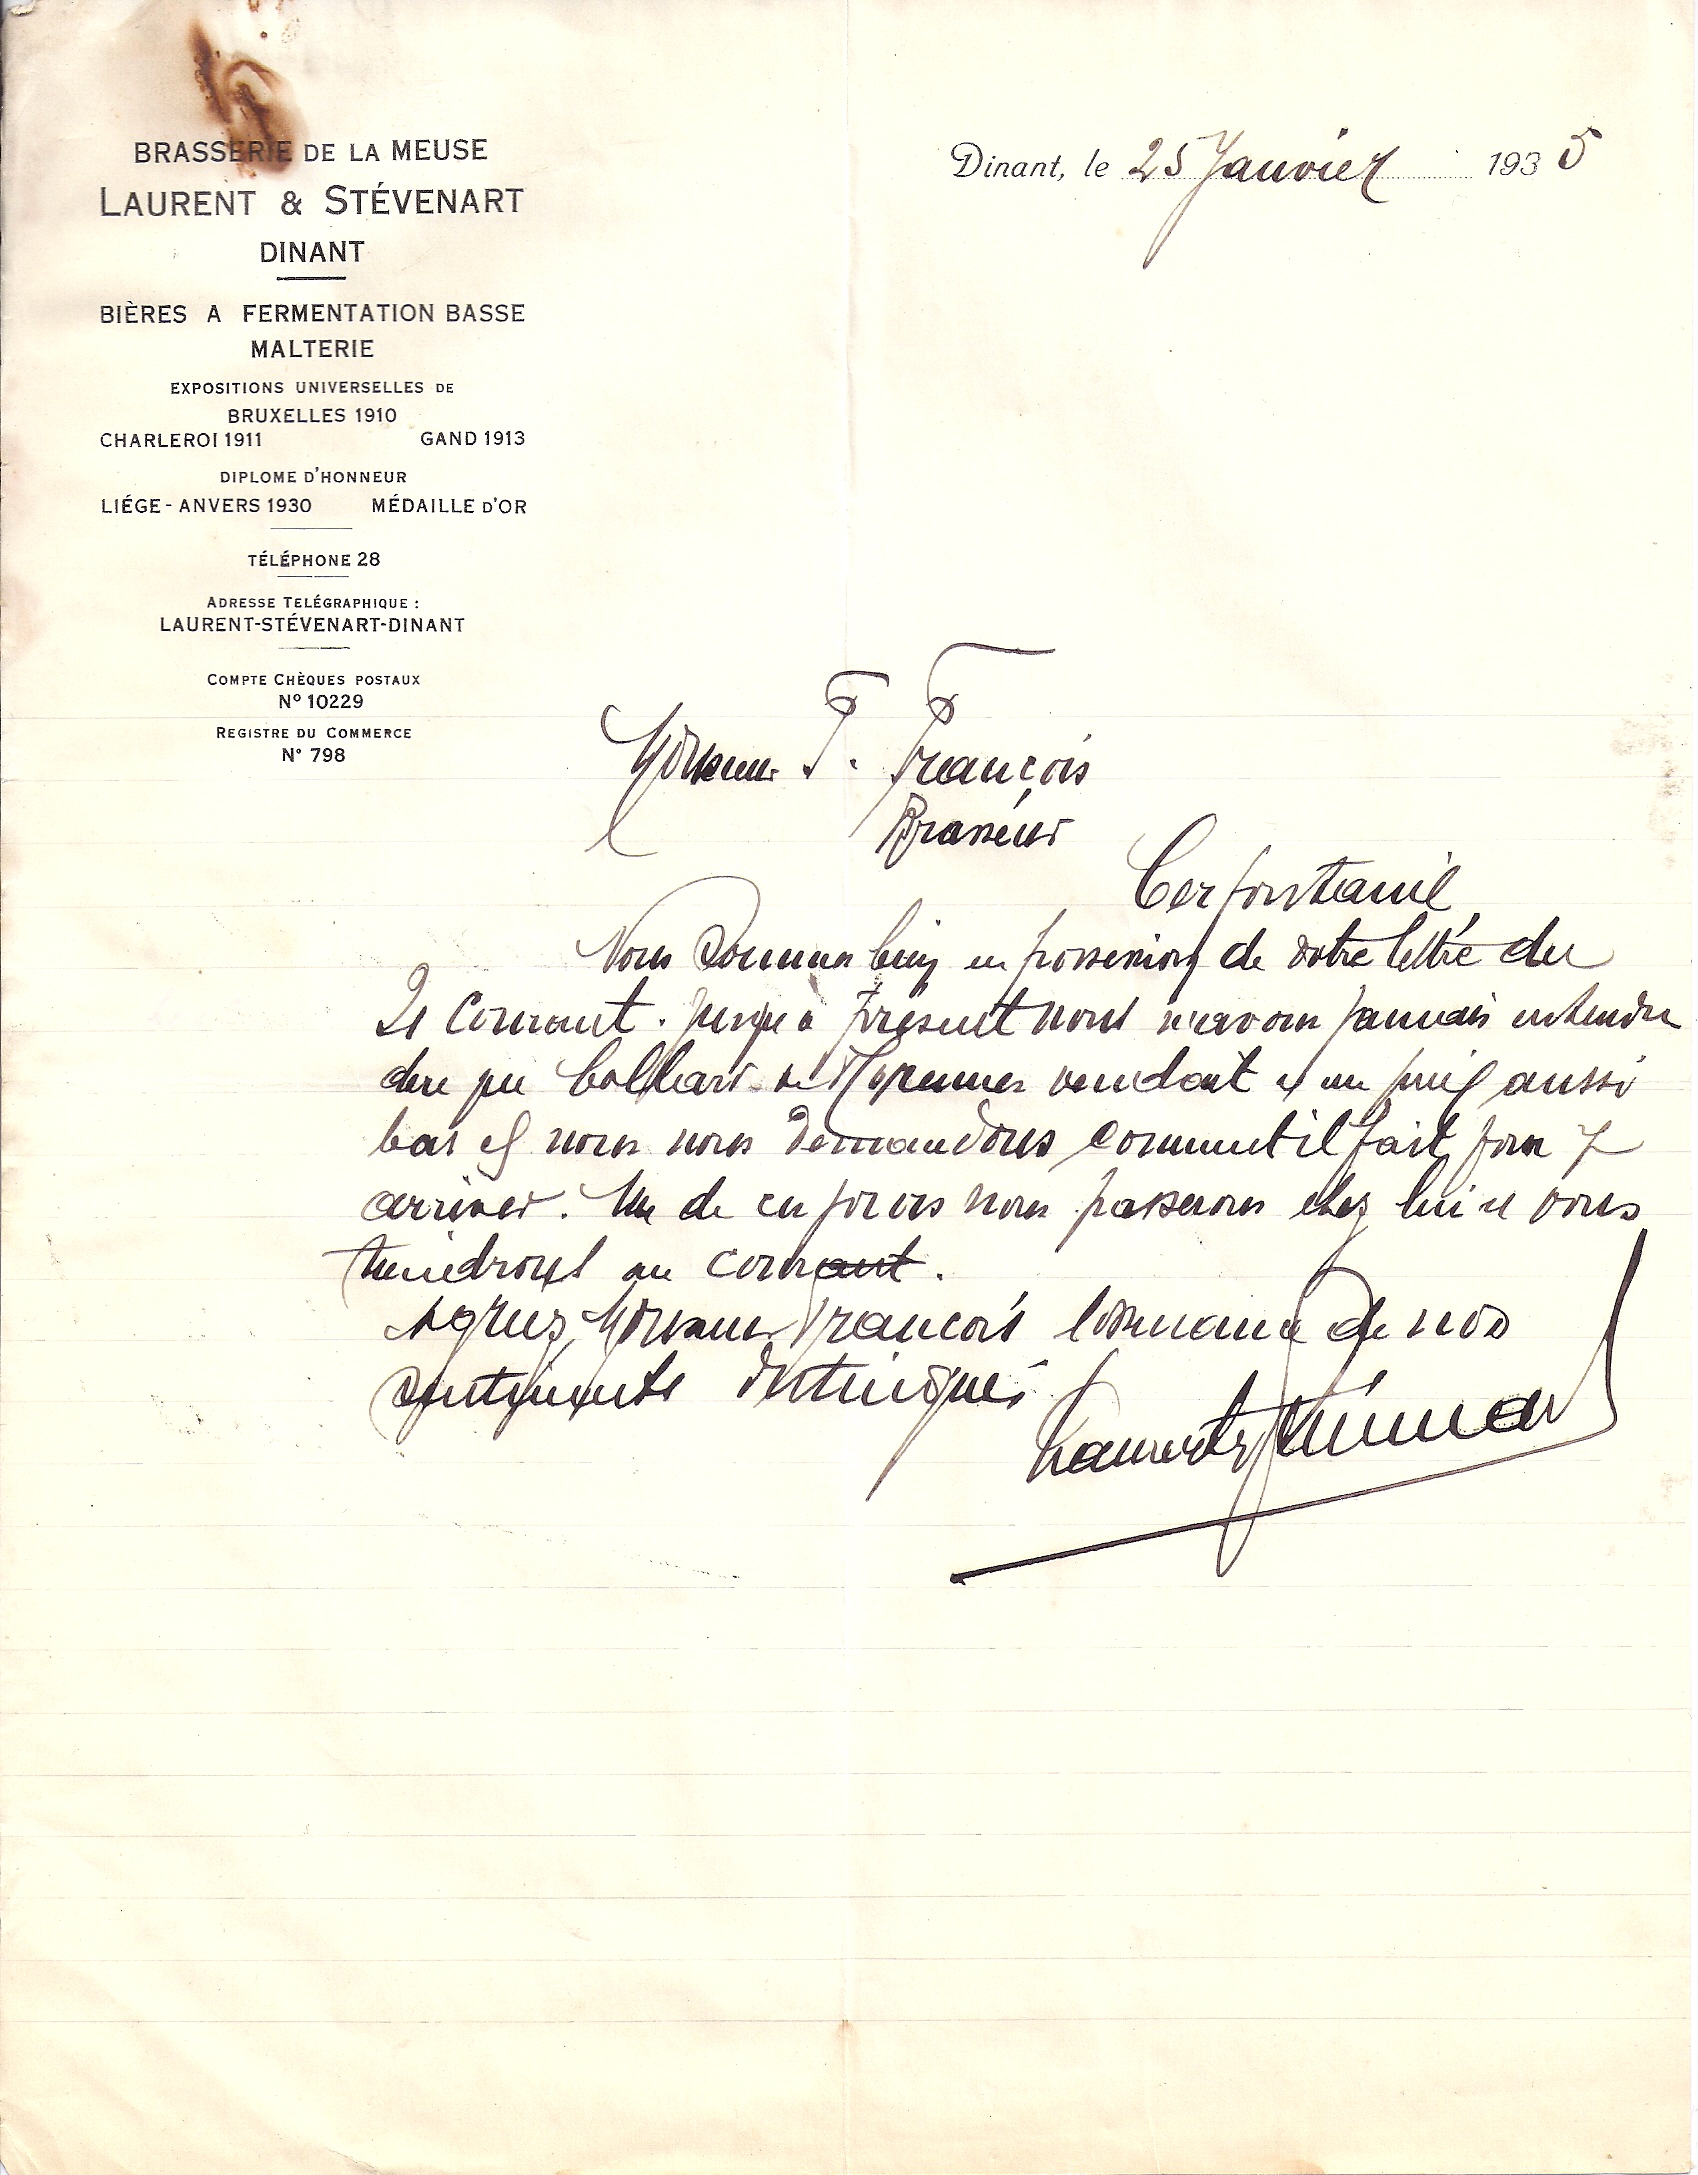 BRASSERIE DE LA MEUSE
LAURENT & STÉVENART
DINANT
BIÈRES A FERMENTATION BASSE
MALTERIE
EXPOSITIONS UNIVERSELLES DE
BRUXELLES 1910
CHARLEROI 1911 GAND 1913
DIPLOME D'HONNEUR
LIÉGE - ANVERS 1930 MÉDAILLE D'OR
TÉLÉPHONE 28
ADRESSE TELÉGRAPHIQUE :
LAURENT-STÉVENART-DINANT
COMPTE CHÈQUES POSTAUX
N° 10229
REGISTRE DU COMMERCE
N° 798
Dinant, le 25 Janvier 1935
Monsieur F. François
Brasseur
Cerfontaine
Nous sommes bien en possession de votre lettre du
courant. Jusqu'à présent nous n'avons jamais entendu
dire que vendait à un prix aussi
bas et nous nous demandons comment il fait pour y
arriver. Un de ces jours nous passerons chez lui et vous
tiendrons au courant.
Agréez, Monsieur François l'assurance de nos
sentiments distingués
Laurent Stévenart